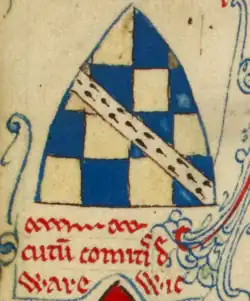 cutū comitis d̄
ware wic